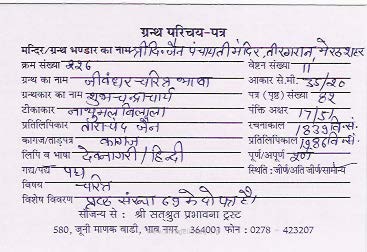 ग्रन्थ परिचय-पत्र
मन्दिर/ग्रन्थ भण्डार का नाम श्री दि. जैन पंचायती मंदिर, तीरगरान, मेरठ शहर
क्रम संख्या २२६ वेष्टन संख्या ॥
ग्रन्थ का नाम जीवंधर-चरित्र भाषा आकार से.मी. 35/20
ग्रन्थकार का नाम शुभचन्द्राचार्य पत्र (पृष्ठ) संख्या ६२
टीकाकार नाथूमल विलाला पंक्ति अक्षर 17/51
प्रतिलिपिकार ताराचंद जैन रचनाकाल 1839 वि.सं.
कागज/ताड़पत्र कागज प्रतिलिपिकाल 1986 वि.सं.
लिपि व भाषा देवनागरी/हिन्दी पूर्ण/अपूर्ण पूर्ण
गद्य/पद्य पद्य स्थिति : जीर्ण/अति जीर्ण/सामान्य
विषय चरित्र
विशेष विवरण पृष्ठ संख्या ६१ के दो
सौजन्य से : श्री सतश्रुत प्रभावना ट्रस्ट
580, जूनी माणक वाडी, भाव नगर 364001 फोन : 0278 - 423207